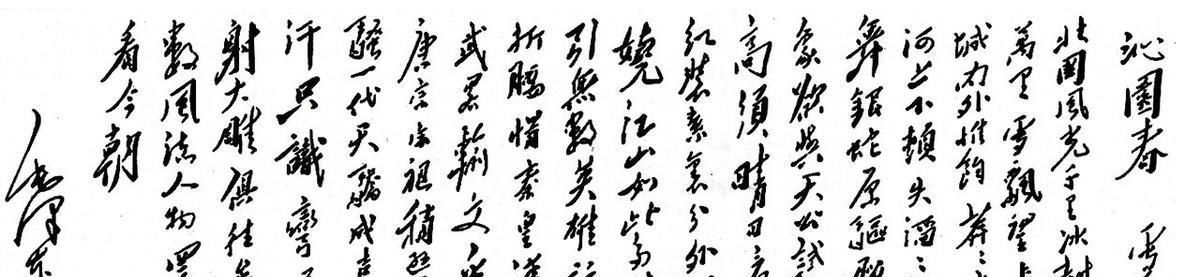 沁園春 雪
北國風光千里冰封
萬里雪飄望長
城內外惟餘莽莽
河上下頓失滔滔
舞銀蛇原驅
象欲與天公試
高須晴日
紅裝素裹分外
嬈江山如此多
引無數英雄
折腰惜秦皇漢
武略輸文
唐宗宋祖稍遜
騷一代天驕成吉
汗只識彎
射大雕俱往矣
數風流人物還
看今朝
毛澤東